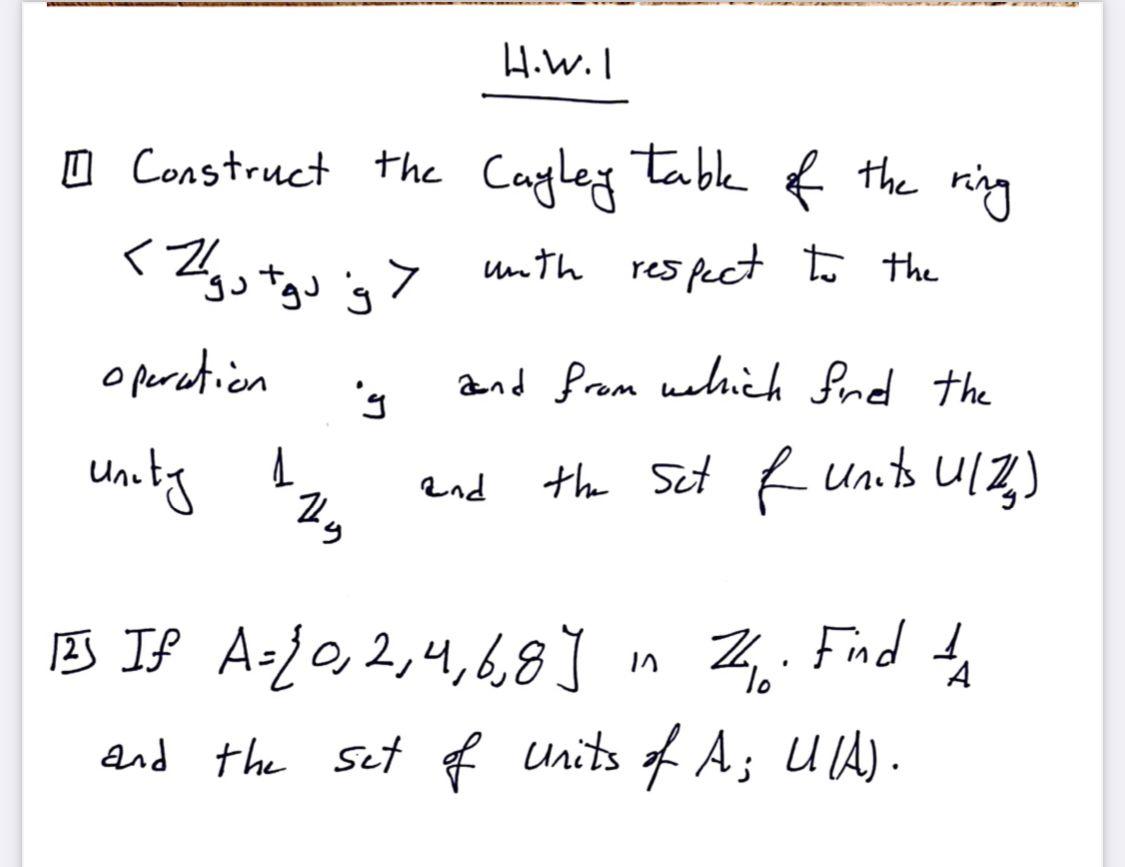 H.W.1
[1] Construct the Cayley Table of the ring
<ℤ₉, +₉, ·₉> with respect to the
operation ·₉ and from which find the
unity 1_ℤ₉ and the set of units U(ℤ₉)
[2] If A={0,2,4,6,8} in ℤ₁₀. Find 1_A
and the set of units of A; U(A).